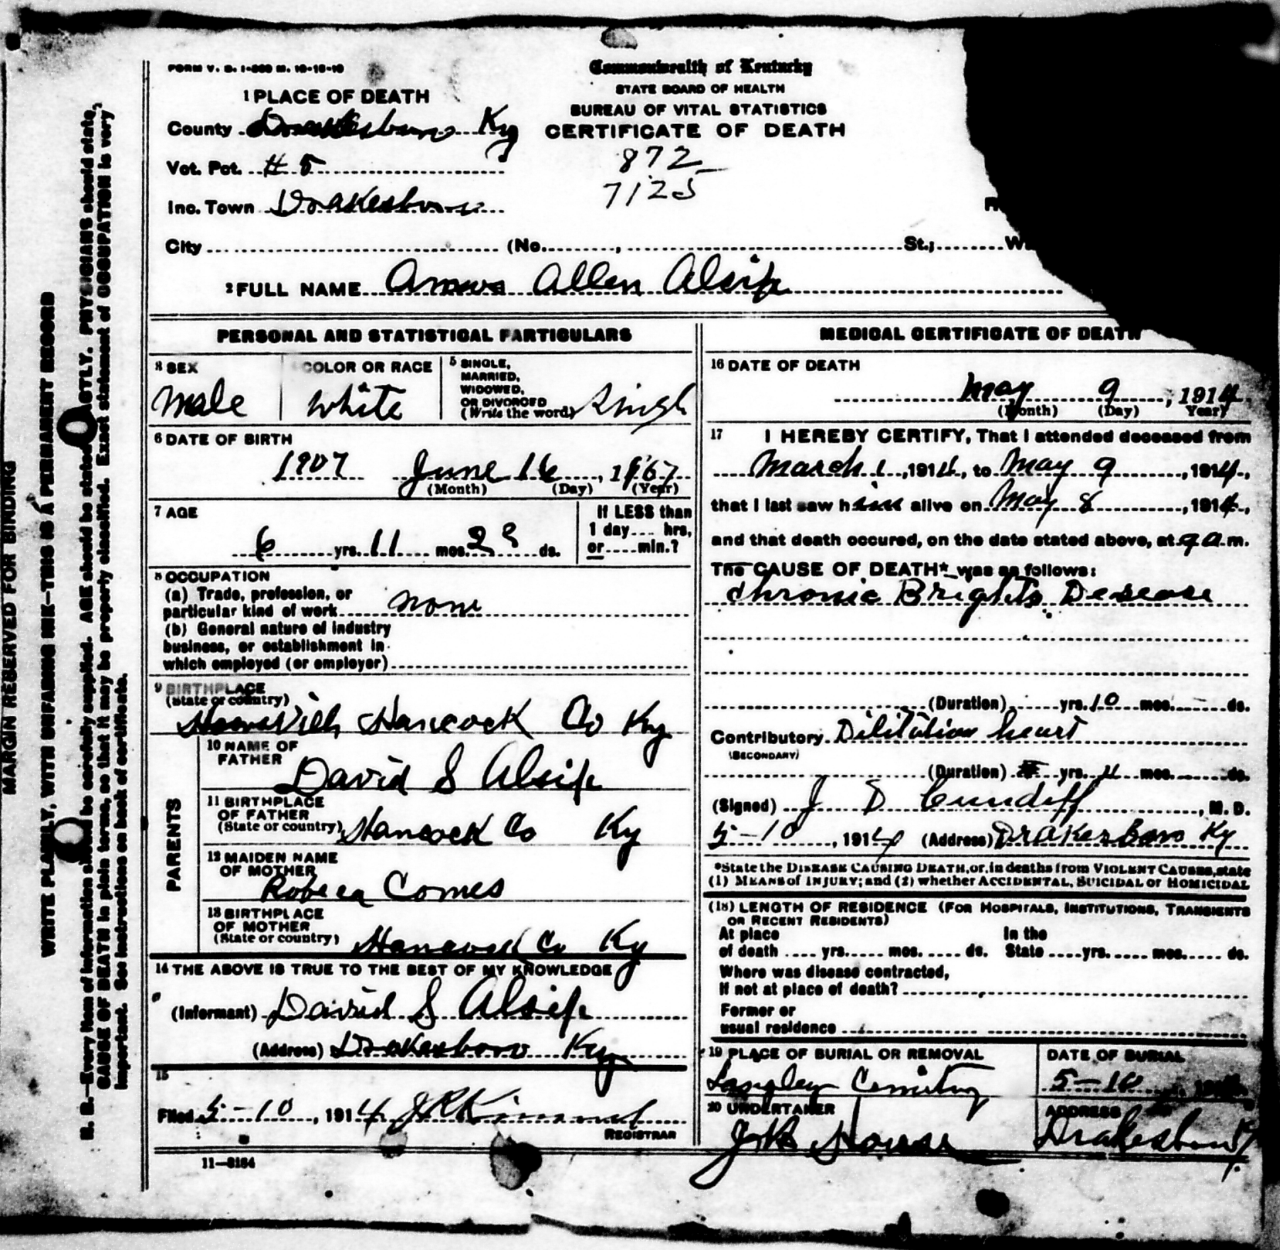 FORM V. S. 1-
Commonwealth of Kentucky
STATE BOARD OF HEALTH
BUREAU OF VITAL STATISTICS
CERTIFICATE OF DEATH
872
7125
1 PLACE OF DEATH
County Drakesboro Ky
Vot. Pct. #5
Inc. Town Drakesboro
City (No. , St.;
2 FULL NAME Allen Alsip
PERSONAL AND STATISTICAL PARTICULARS
3 SEX
Male
COLOR OR RACE
White
5 SINGLE,
MARRIED,
WIDOWED,
OR DIVORCED
(Write the word) Singl
6 DATE OF BIRTH
1907 June 16, 1907
(Month) (Day) (Year)
7 AGE
6 yrs. 11 mos. 23 ds.
If LESS than
1 day.... hrs,
or.....min.?
8 OCCUPATION
(a) Trade, profession, or
particular kind of work none
(b) General nature of industry
business, or establishment in
which employed (or employer)
9 BIRTHPLACE
(State or country)
Hancock Co Ky
PARENTS
10 NAME OF
FATHER
David S Alsip
11 BIRTHPLACE
OF FATHER
(State or country) Hancock Co Ky
12 MAIDEN NAME
OF MOTHER
Robeca Comes
13 BIRTHPLACE
OF MOTHER
(State or country) Hancock Co Ky
14 THE ABOVE IS TRUE TO THE BEST OF MY KNOWLEDGE
(Informant) David S Alsip
(Address) Drakesboro Ky
15
Filed 5-10, 1914
REGISTRAR
11—3184
MEDICAL CERTIFICATE OF DEATH
16 DATE OF DEATH
May 9, 1914
(Month) (Day) Year)
17 I HEREBY CERTIFY, That I attended deceased from
March 1, 1914, to May 9, 1914,
that I last saw him alive on May 8, 1914,
and that death occured, on the date stated above, at 9 a.m.
The CAUSE OF DEATH* was as follows:
Chronic Brights Desease
(Duration) yrs. 10 mos. - ds.
Contributory Dilitation heart
(SECONDARY)
(Duration) yrs. 4 mos. ds.
(Signed) J D Cundiff, M. D.
5-10, 1914 (Address) Drakesboro Ky
*State the DISEASE CAUSING DEATH, or, in deaths from VIOLENT CAUSES, state
(1) MEANS of INJURY; and (2) whether ACCIDENTAL, SUICIDAL or HOMICIDAL
(18) LENGTH OF RESIDENCE (FOR HOSPITALS, INSTITUTIONS, TRANSIENTS
OR RECENT RESIDENTS)
At place In the
of death .... yrs..... mos..... ds. State ....yrs..... mos..... ds.
Where was disease contracted,
If not at place of death?
Former or
usual residence
19 PLACE OF BURIAL OR REMOVAL
Langley Cemitery
DATE OF BURIAL
5-10
20 UNDERTAKER
House
ADDRESS
Drakesboro Ky
MARGIN RESERVED FOR BINDING
WRITE PLAINLY, WITH UNFADING INK—THIS IS A PERMANENT RECORD
N. B.—Every item of information should be carefully supplied. AGE should be stated EXACTLY. PHYSICIANS should state
CAUSE OF DEATH in plain terms, so that it may be properly classified. Exact statement of OCCUPATION is very
important. See instructions on back of certificate.